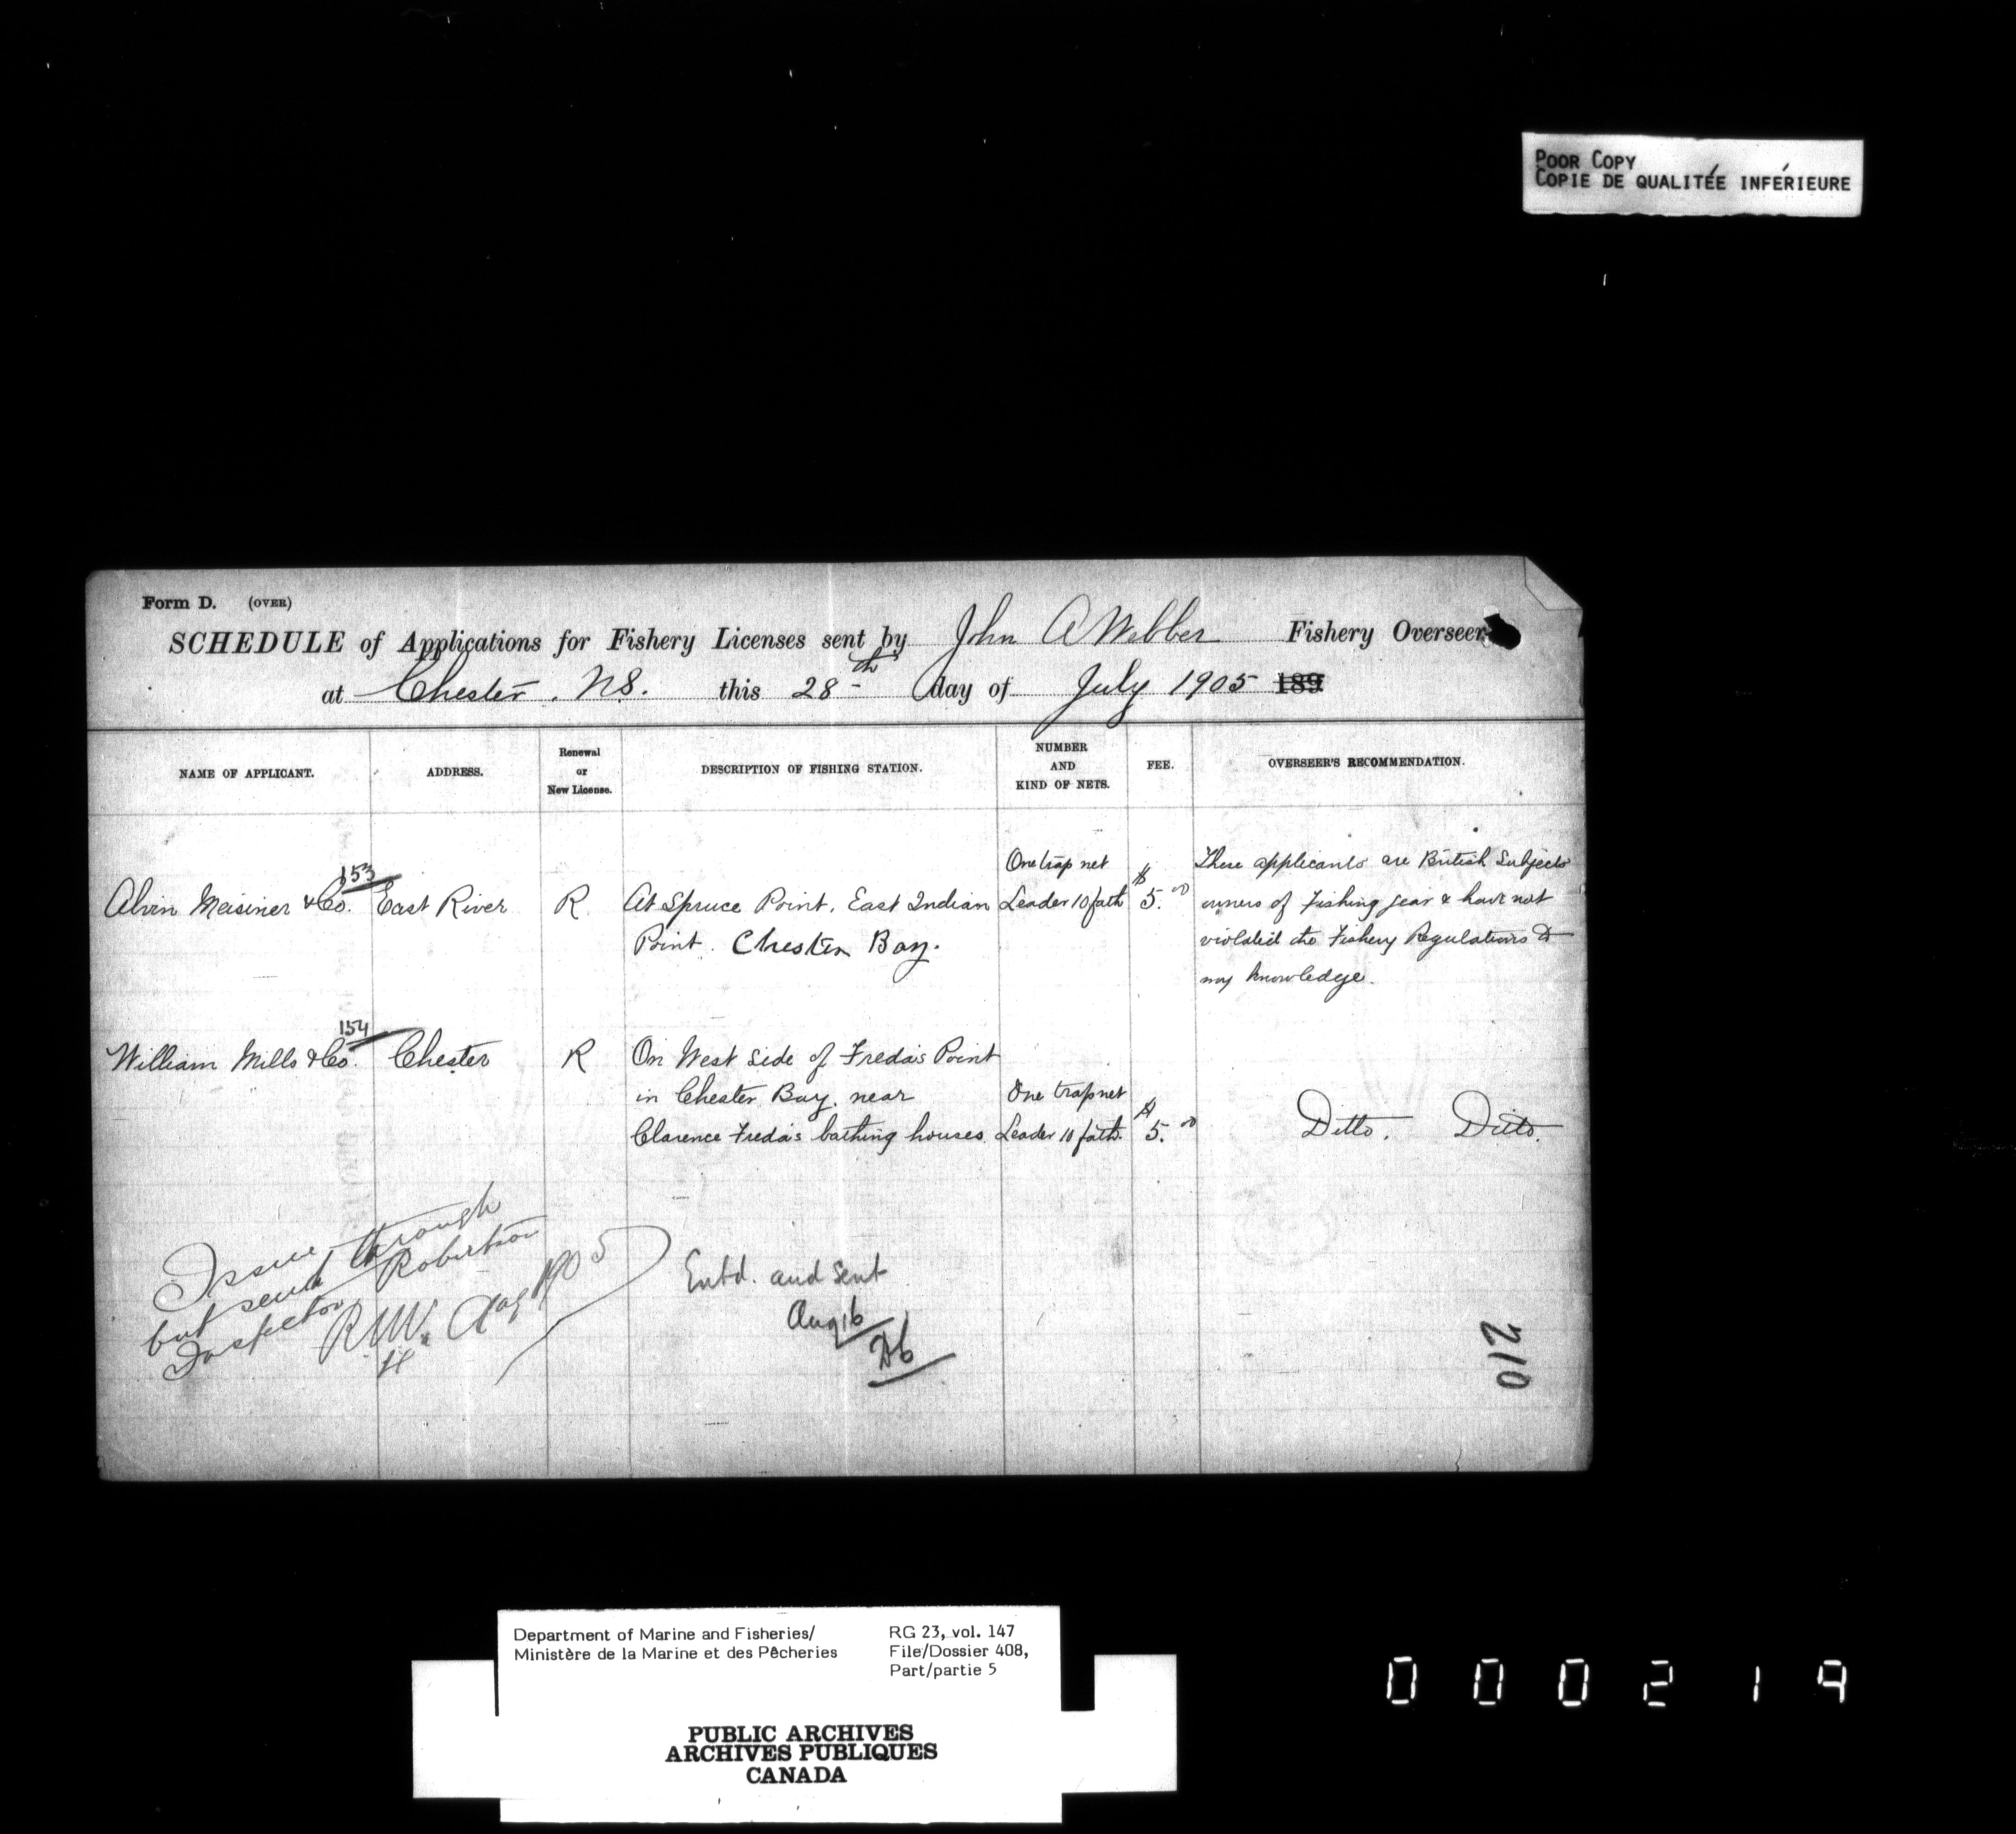 POOR COPY
COPIE DE QUALITÉE INFÉRIEURE
Form D. (OVER)
SCHEDULE of Applications for Fishery Licenses sent by John A Webber Fishery Overseer
at Chester, N.S. this 28th day of July 1905 189
NAME OF APPLICANT.
ADDRESS.
Renewal
or
New License.
DESCRIPTION OF FISHING STATION.
NUMBER
AND
KIND OF NETS.
FEE.
OVERSEER'S RECOMMENDATION.
153
Alvin Meisiner & Co.
East River
R
At Spruce Point, East Indian
Point. Chester Bay.
One trap net
Leader 10 fath
$5.00
These applicants are British Subjects
owners of Fishing gear & have not
violated the Fishery Regulations to
my knowledge.
154
William Mills & Co.
Chester
R
On West side of Freda's Point
in Chester Bay, near
Clarence Freda's bathing houses.
One trap net
Leader 10 fath.
$5.00
Ditto. Ditto.
Issue
but send through
Inspector Robertson
Aug 1905
Entd. and sent
Aug 16
210
Department of Marine and Fisheries/
Ministère de la Marine et des Pêcheries
RG 23, vol. 147
File/Dossier 408,
Part/partie 5
PUBLIC ARCHIVES
ARCHIVES PUBLIQUES
CANADA
000219